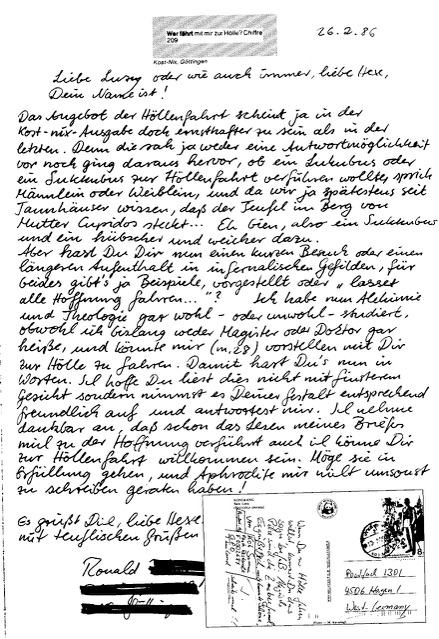 Wer fährt mit mir zur Hölle? Chiffre
209
Kost-Nix, Göttingen
26.2.86
Liebe Luzy oder wie auch immer, liebe Hexe,
Dein Name ist!
Das Angebot der Höllenfahrt scheint ja in der
Kost-nix-Ausgabe doch ernsthafter zu sein als in der
letzten. Denn die sah ja weder eine Antwortmöglichkeit
vor noch ging daraus hervor, ob ein Inkubus oder
ein Sukkubus zur Höllenfahrt verführen wollte, sprich
Männlein oder Weiblein, und da wir ja spätestens seit
Tannhäuser wissen, daß der Teufel im Berg von
Mutter Cupidos steckt... Eh bien, also ein Sukkubus
und ein hübscher und weicher dazu.
Aber hast Du Dir nun einen kurzen Besuch oder einen
längeren Aufenthalt in infernalischen Gefilden, für
beides gibt's ja Beispiele, vorgestellt oder "lasset
alle Hoffnung fahren..."? Ich habe nun Alchimie
und Theologie gar wohl- oder unwohl- studiert,
obwohl ich bislang weder Magister oder Doktor gar
heiße, und könnte mir (m, 28) vorstellen mit Dir
zur Hölle zu fahren. Damit hast Du's nun in
Worten. Ich hoffe Du liest dies nicht mit finsterem
Gesicht sondern nimmst es Deiner Gestalt entsprechend
freundlich auf und antwortest mir. Ich nehme
dankbar an, daß schon das Lesen meines Briefes
mich zu der Hoffnung verführt auch ich könne Dir
zur Höllenfahrt willkommen sein. Möge sie in
Erfüllung gehen, und Aphrodite mir nicht umsonst
zu schreiben geraten haben!
Es grüßt Dich, liebe Hexe
mit teuflischen Grüßen
Ronald
Wenn Du zur Hölle fahren
Postfach 1301
4506 Hagen 1
West Germany